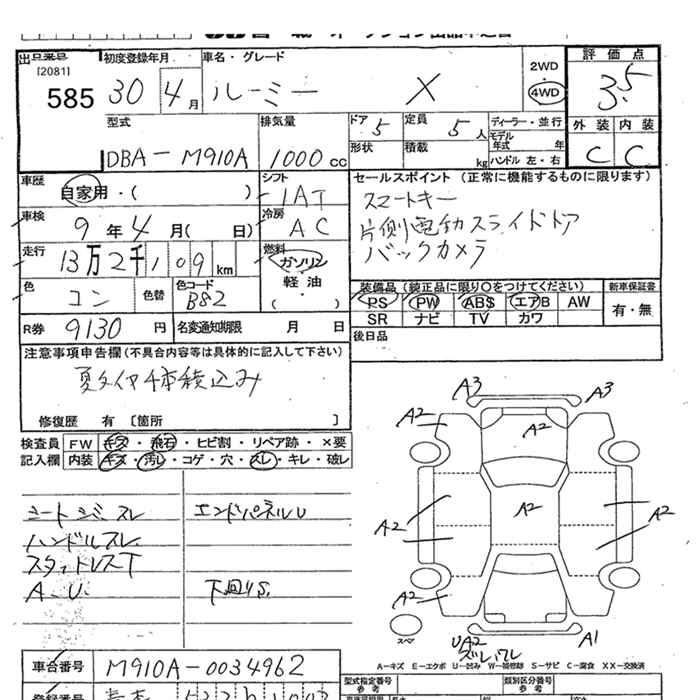 出品番号 初度登録年月 車名・グレード 2WD 評価点
[2081]
585 30 4月 ルーミー X 4WD 3.5
型式 排気量 ドア 5 定員 5人 ディーラー・並行 外装 内装
モデル年式 年
DBA-M910A 1000cc 形状 積載 kg ハンドル 左・右 C C
車歴 自家用・( ) シフト セールスポイント (正常に機能するものに限ります)
IAT スマートキー
車検 9年4月( 日) 冷房 AC 片側電動スライドドア
走行 13万2千109km 燃料 ガソリン・軽油 バックカメラ
( )
色 コン 色替 色コード B82 装備品 (純正品に限り○をつけてください) 新車保証書
PS PW ABS エアB AW 有・無
R券 9130円 名変通知期限 月 日 SR ナビ TV カワ
後日品
注意事項申告欄(不具合内容等は具体的に記入して下さい)
夏タイヤ4本積込み
修復歴 有 [箇所 ]
検査員 FW キズ・飛石・ヒビ割・リペア跡・×要
記入欄 内装 キズ・汚レ・コゲ・穴・スレ・キレ・破レ
シートシミスレ エンドパネルU
ハンドルスレ
スタットレスT
A.U. 下回りS.
A3 A3
A2 A2
A2 A2 A2
A2
スペア UA2 A1
ズレワレ
A-キズ E-エクボ U-凹み W-補修跡 S-サビ C-腐食 XX-交換済
車台番号 M910A-0034962 型式指定番号 類別区分番号
参考 参考
登録番号